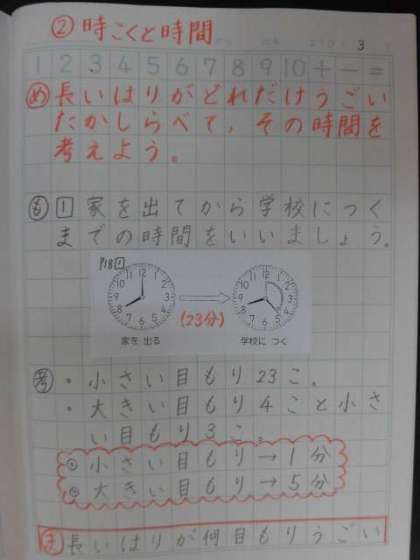 ② 時こくと時間
3
1 2 3 4 5 6 7 8 9 10 + − =
め 長いはりがどれだけうごい
たかしらべて、その時間を
考えよう。
も 1 家を出てから学校につく
までの時間をいいましょう。
P18 1
12 1 2 3 4 5 6 7 8 9 10 11
12 1 2 3 4 5 6 7 8 9 10 11
(23分)
家を 出る 学校に つく
考 ・小さい目もり23こ。
・大きい目もり4こと小さ
い目もり3こ。
小さい目もり→1分
大きい目もり→5分
ま 長いはりが何目もりうごい